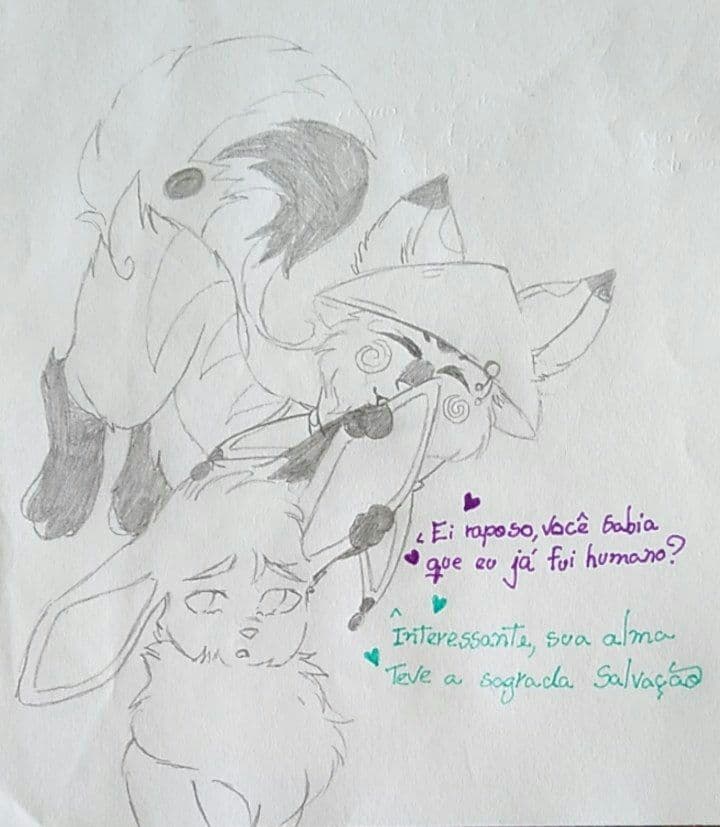 ¿Ei raposo, você sabia
que eu já fui humano?
Înteressante, sua alma
Teve a sagrada Salvação